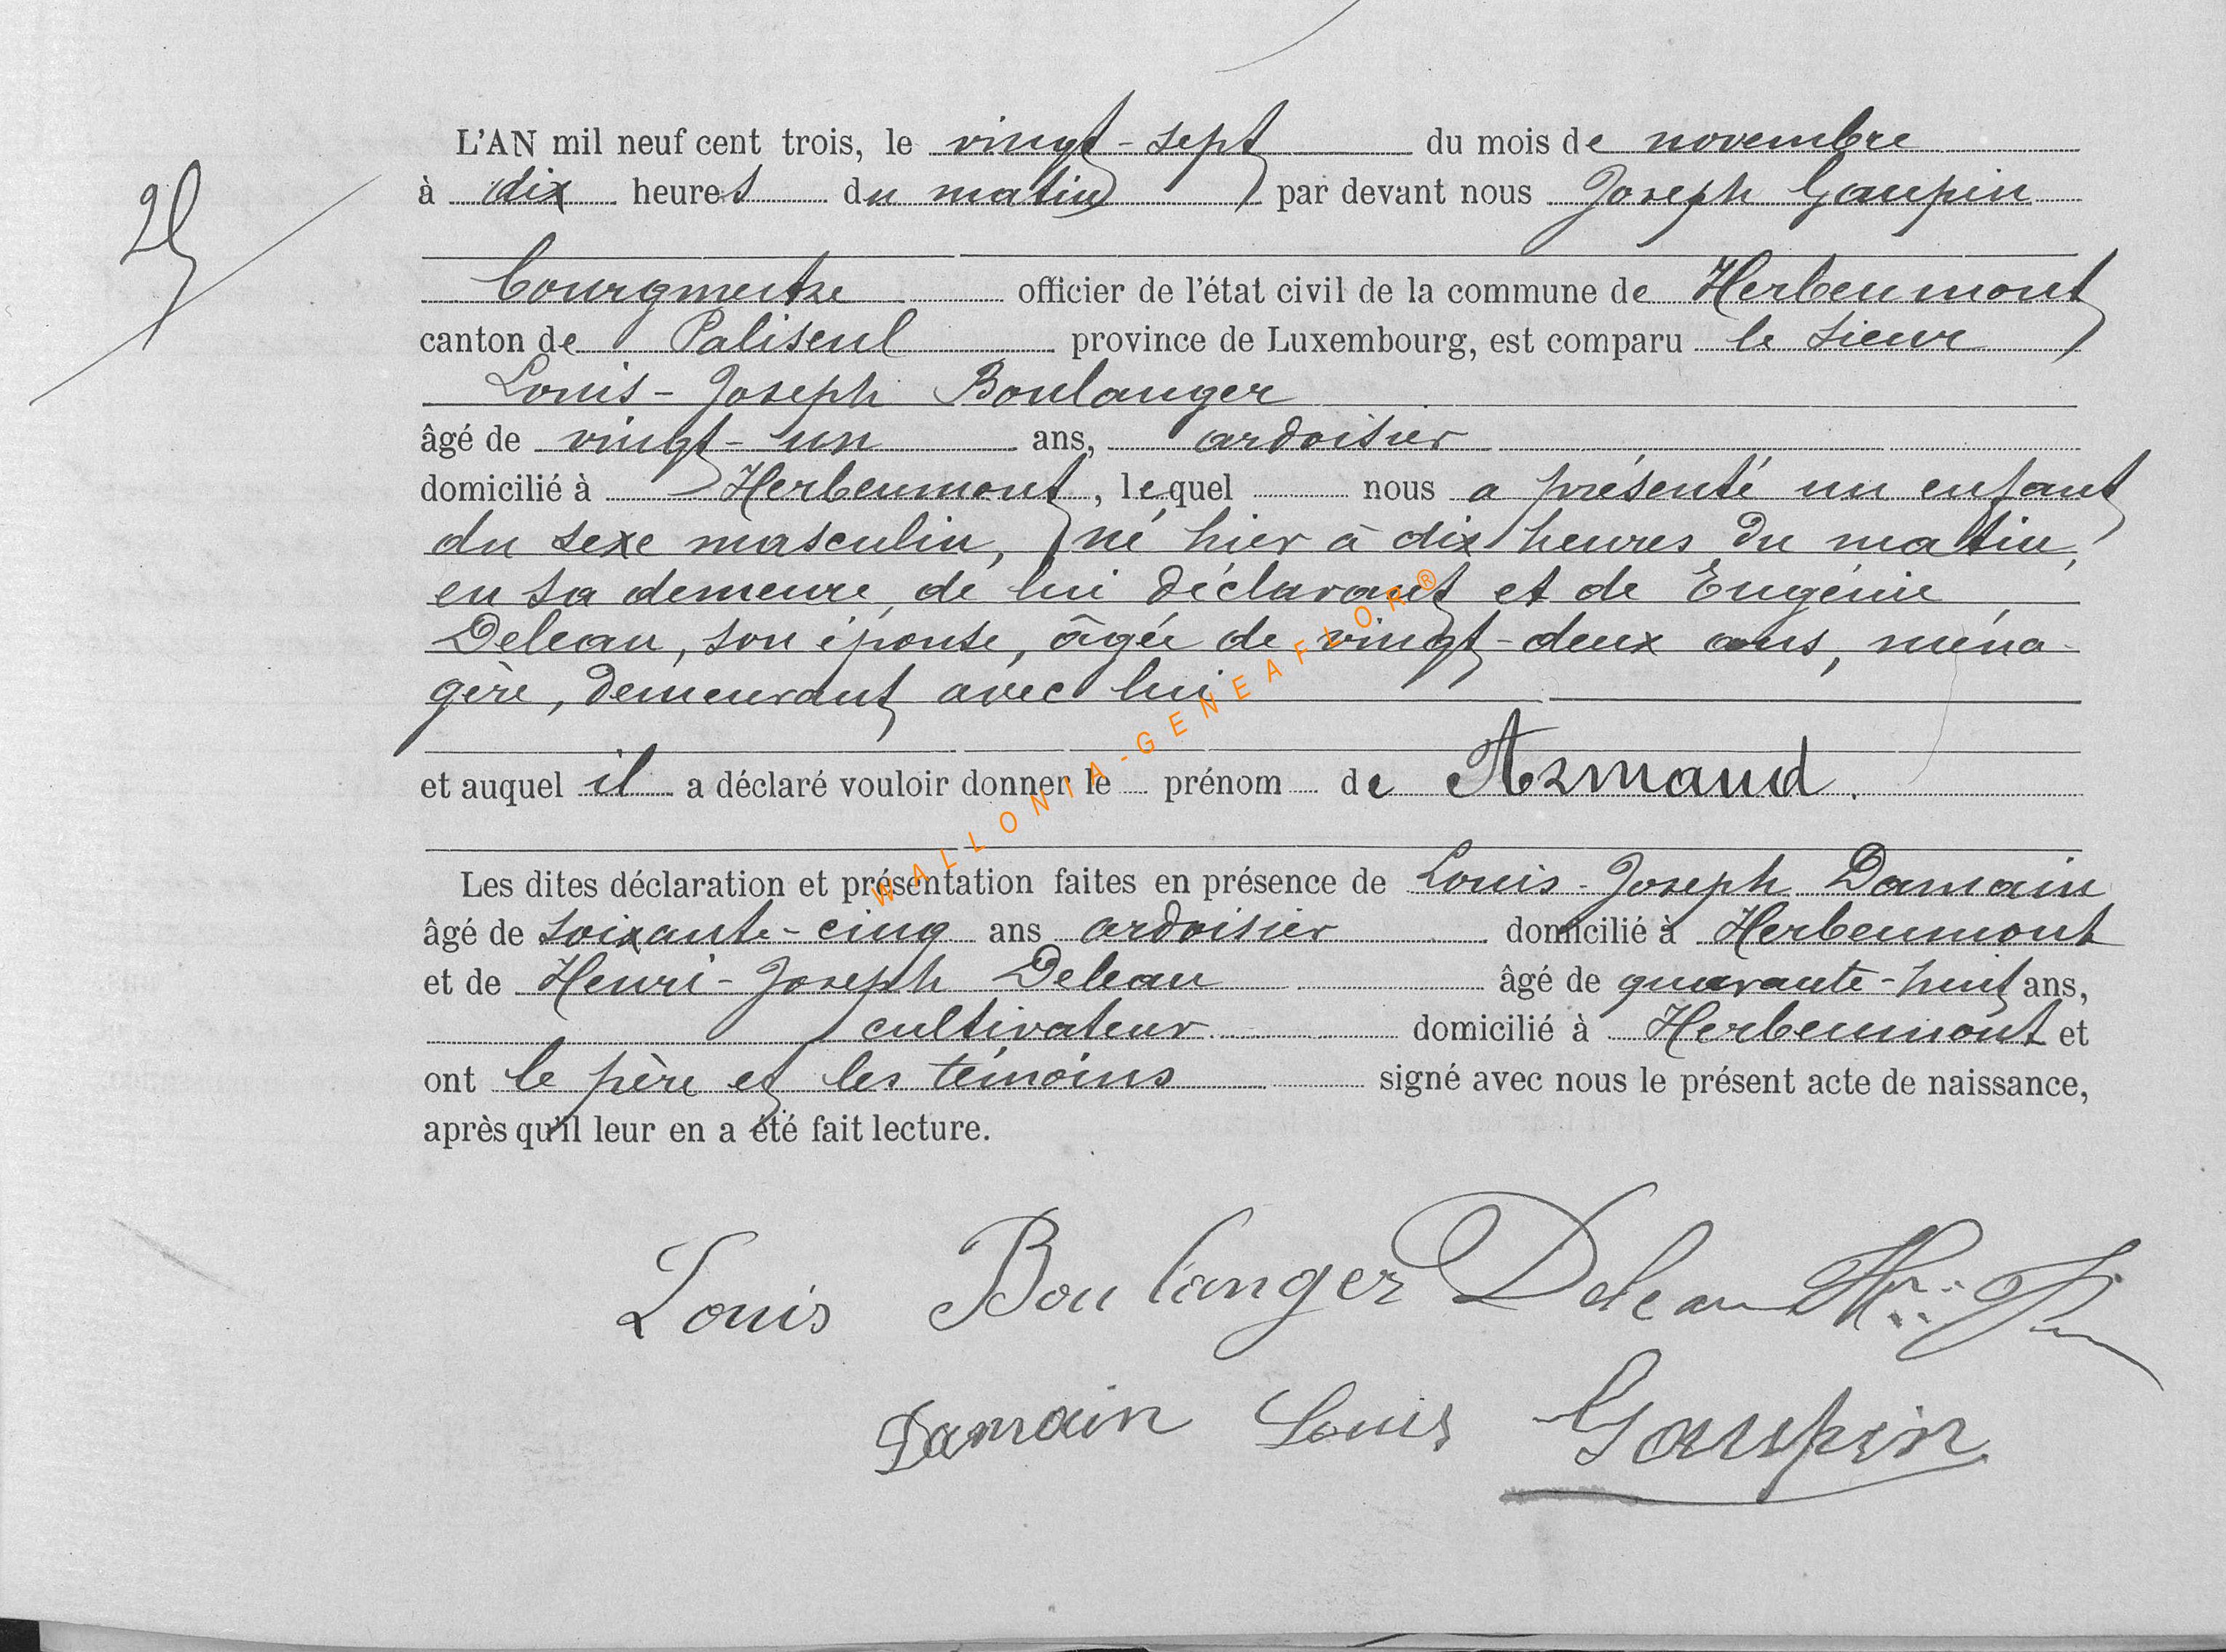 25
L'AN mil neuf cent trois, le vingt-sept du mois de novembre
à dix heures du matin par devant nous Joseph Gaupin
bourgmestre officier de l'état civil de la commune de Herbeumont
canton de Paliseul province de Luxembourg, est comparu le sieur
Louis-Joseph Boulanger
âgé de vingt-un ans, ardoisier
domicilié à Herbeumont, lequel nous a présenté un enfant
du sexe masculin, né hier à dix heures du matin,
en sa demeure, de lui déclarant et de Eugénie
Deleau, son épouse, âgée de vingt-deux ans, ména-
gère, demeurant avec lui
et auquel il a déclaré vouloir donner le prénom de Armand.
Les dites déclaration et présentation faites en présence de Louis-Joseph Damain
âgé de soixante-cinq ans ardoisier domicilié à Herbeumont
et de Henri-Joseph Deleau âgé de quarante-huit ans,
cultivateur domicilié à Herbeumont et
ont le père et les témoins signé avec nous le présent acte de naissance,
après qu'il leur en a été fait lecture.
Louis Boulanger Deleau Hri
Damain Louis Gaupin
WALLONIA-GENEAFLOR®